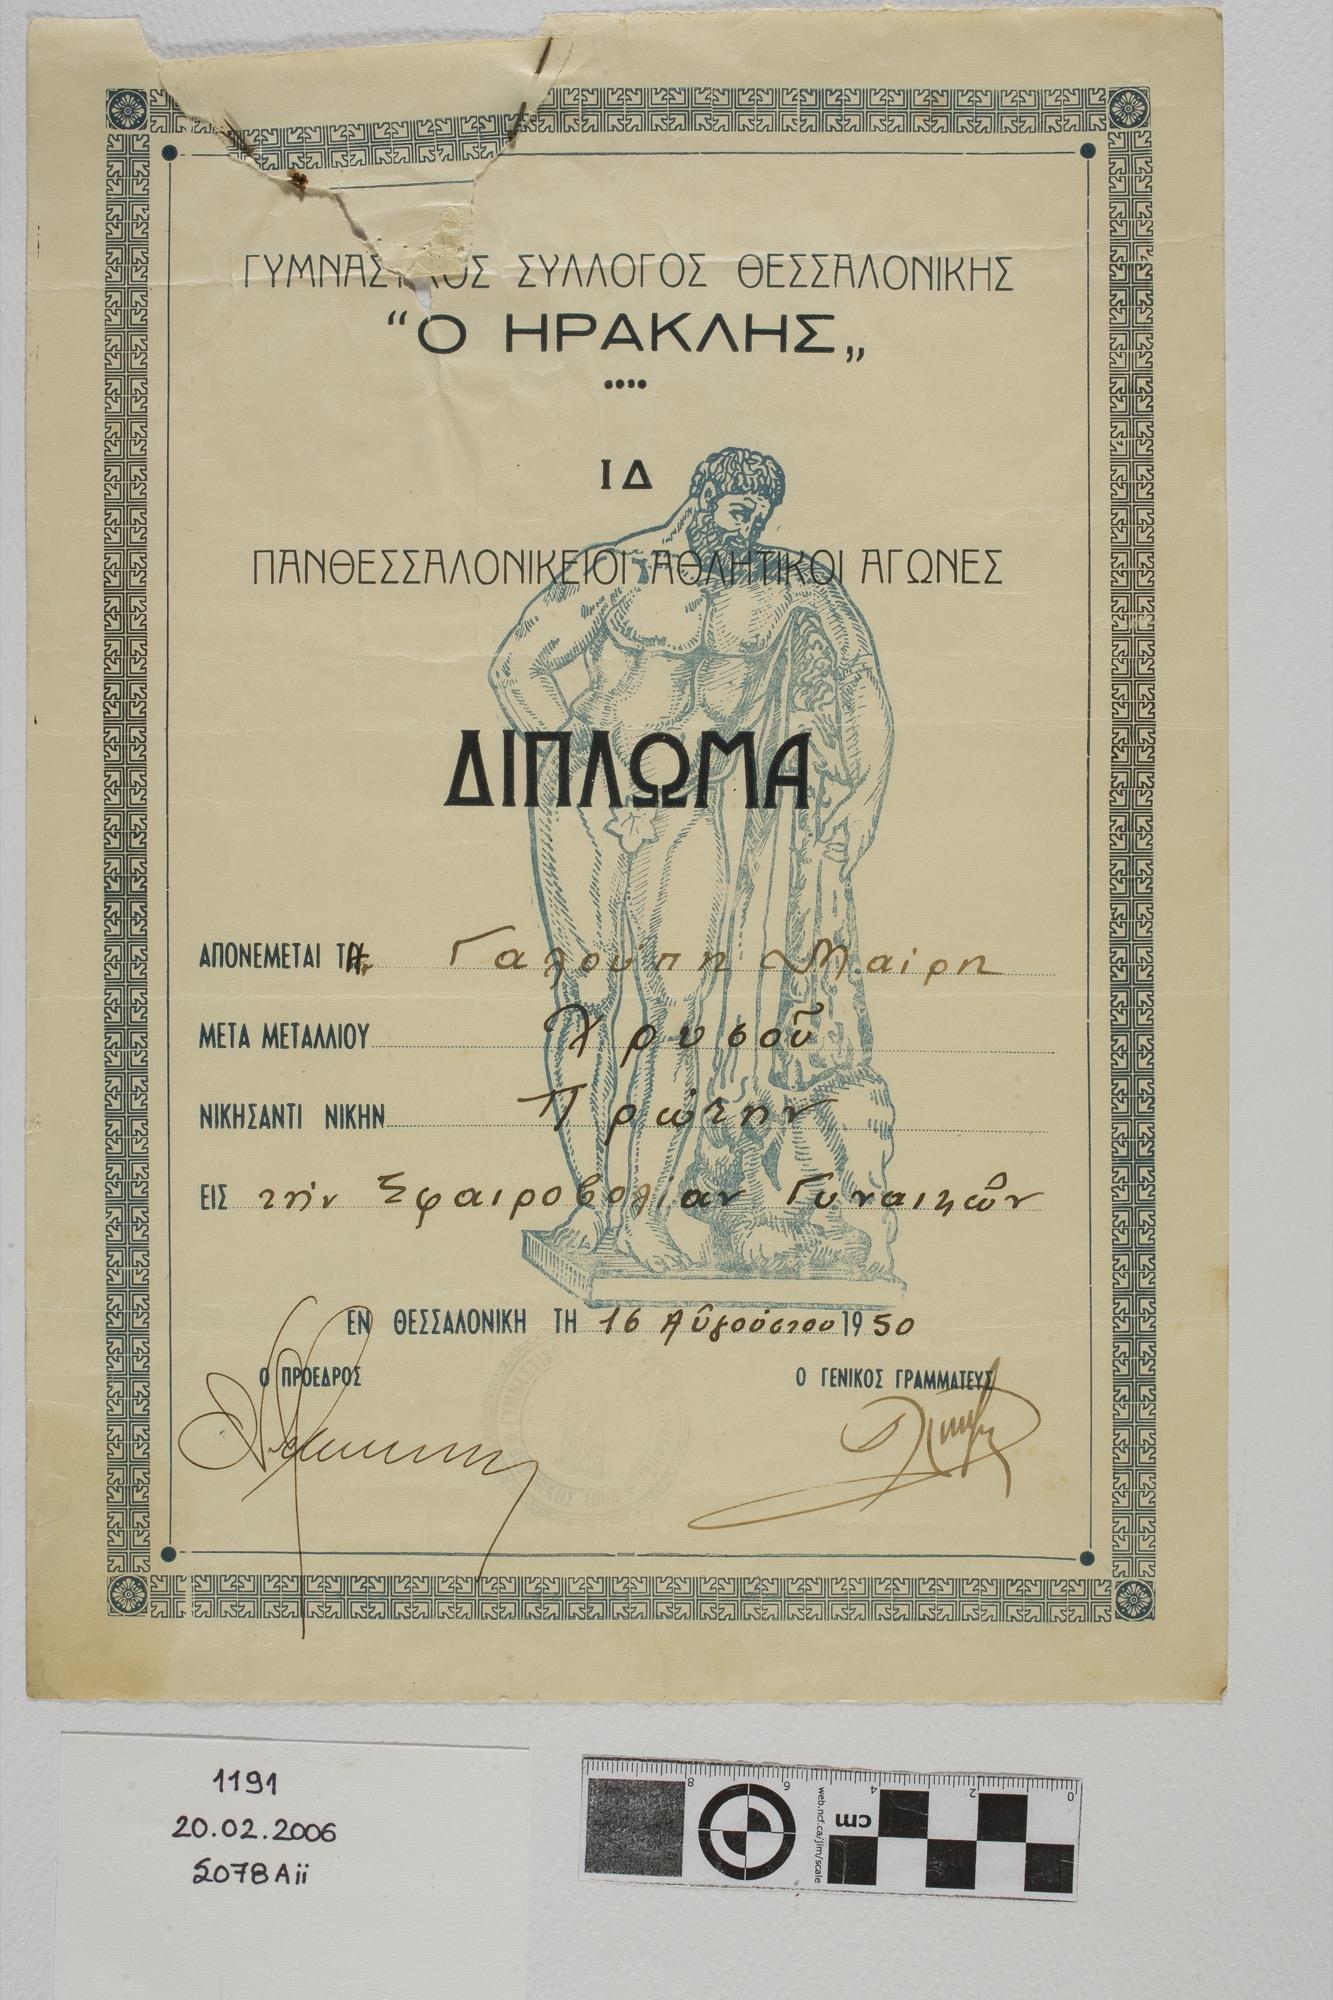 ΓΥΜΝΑΣ ΟΣ ΣΥΛΛΟΓΟΣ ΘΕΣΣΑΛΟΝΙΚΗΣ
“Ο ΗΡΑΚΛΗΣ„
ΙΔ
ΠΑΝΘΕΣΣΑΛΟΝΙΚΕΙΟΙ ΑΘΛΗΤΙΚΟΙ ΑΓΩΝΕΣ
ΔΙΠΛΩΜΑ
ΑΠΟΝΕΜΕΤΑΙ ΤΗ Γαλούπη Μαίρη
ΜΕΤΑ ΜΕΤΑΛΛΙΟΥ Χρυσοῦ
ΝΙΚΗΣΑΝΤΙ ΝΙΚΗΝ Πρώτην
ΕΙΣ τὴν Σφαιροβολίαν Γυναικῶν
ΕΝ ΘΕΣΣΑΛΟΝΙΚΗ ΤΗ 16 Αὐγούστου 1950
Ο ΠΡΟΕΔΡΟΣ Ο ΓΕΝΙΚΟΣ ΓΡΑΜΜΑΤΕΥΣ
1191
20.02.2006
S078Aii
8 6 4 2 0
cm
web.ncf.ca/jim/scale